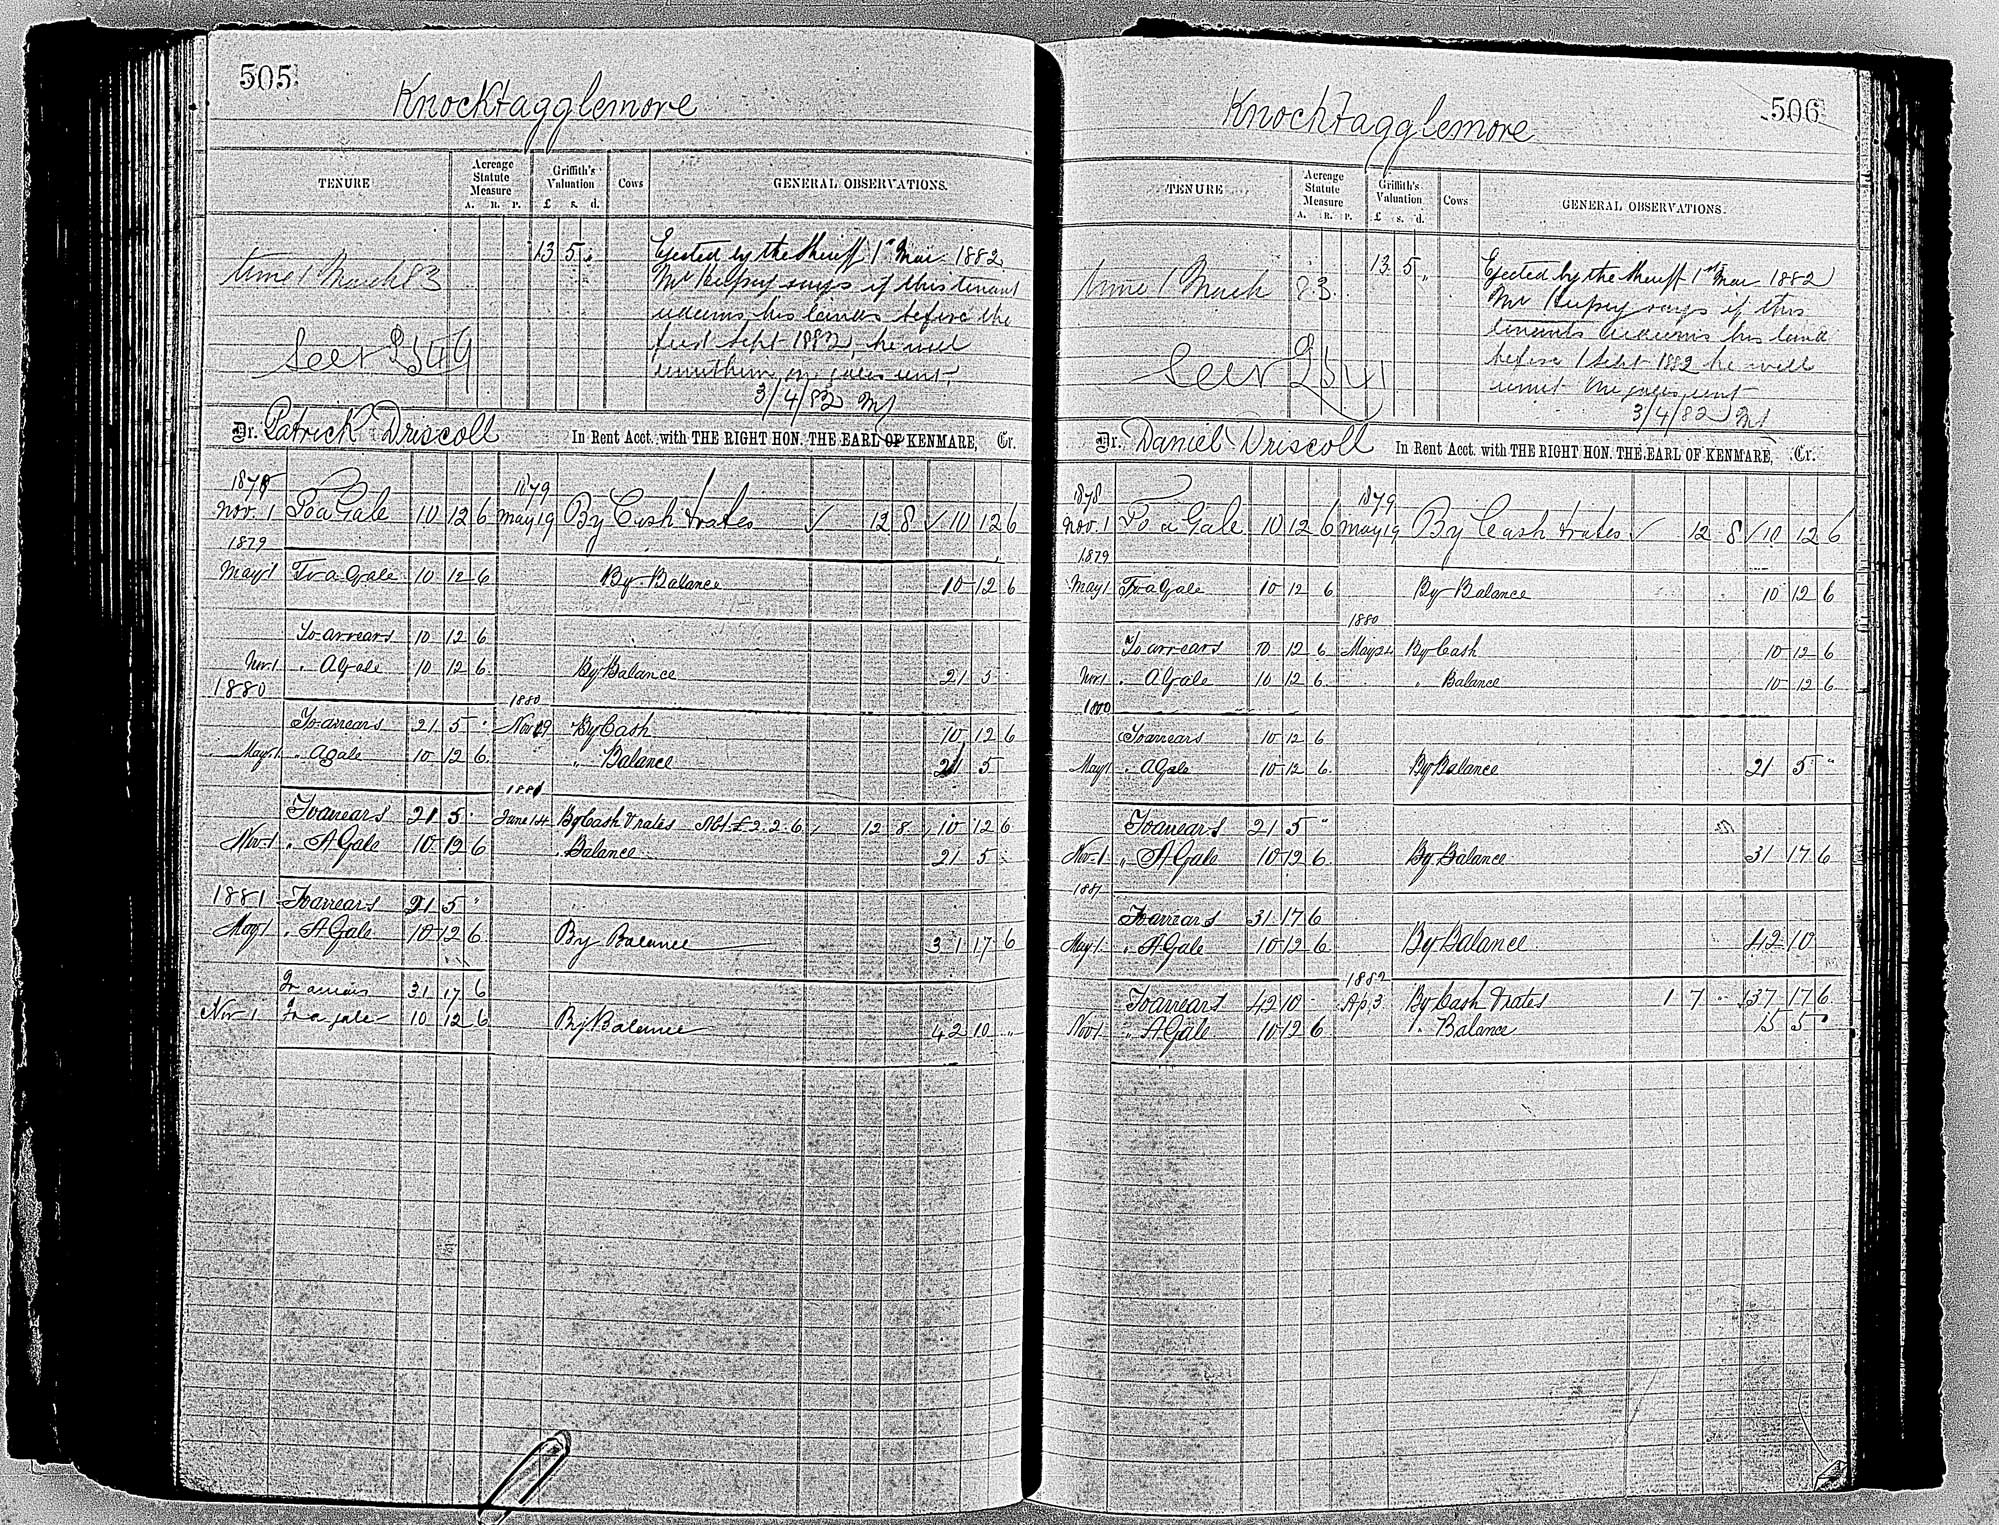 505
Knocktagglemore
TENURE
Acreage Statute Measure
A. R. P.
Griffith's Valuation
£ s. d.
Cows
GENERAL OBSERVATIONS.
time 1 March 83
13 5 "
Ejected by the Sheriff 1st Mar 1882
Mr Hussey says if this tenant
redeems his lands before the
first Sept 1882, he will
remit him one gales rent.
3/4/82
Dr. Patrick Driscoll In Rent Acct. with THE RIGHT HON. THE EARL OF KENMARE, Cr.
1878 1879
Nov. 1 To a Gale 10 12 6 May 19 By Cash & rates ✓ 12 8 ✓ 10 12 6
1879
May 1 To a Gale 10 12 6 By Balance 10 12 6
To arrears 10 12 6
Nov. 1 " A Gale 10 12 6 By Balance 21 5
1880 1880
To arrears 21 5 " Nov 19 By Cash 10 12 6
May 1 " A gale 10 12 6 " Balance 21 5
1881
To arrears 21 5 " June 14 By Cash & rates Abt £2.2.6 12 8 10 12 6
Nov. 1 " A Gale 10 12 6 " Balance 21 5 "
1881 To arrears 21 5 "
May 1 " A Gale 10 12 6 By Balance 31 17 6
To arrears 31 17 6
Nov 1 To a gale 10 12 6 By Balance 42 10 "
506
Knocktagglemore
TENURE
Acreage Statute Measure
A. R. P.
Griffith's Valuation
£ s. d.
Cows
GENERAL OBSERVATIONS.
time 1 March 83
13 5 "
Ejected by the Sheriff 1st Mar 1882
Mr Hussey says if this
tenants redeems his land
before 1 Sept 1882 he will
remit one gales rent
3/4/82
Dr. Daniel Driscoll In Rent Acct. with THE RIGHT HON. THE EARL OF KENMARE, Cr.
1878 1879
Nov. 1 To a Gale 10 12 6 May 19 By Cash & rates ✓ 12 8 ✓ 10 12 6
1879
May 1 To a Gale 10 12 6 By Balance 10 12 6
1880
To arrears 10 12 6 May 24 By Cash 10 12 6
Nov. 1 " A Gale 10 12 6 " Balance 10 12 6
1880
To arrears 10 12 6
May 1 " A Gale 10 12 6 By Balance 21 5 "
To arrears 21 5 "
Nov. 1 " A Gale 10 12 6 By Balance 31 17 6
1881
To arrears 31 17 6
May 1 " A Gale 10 12 6 By Balance 42 10
1882
To arrears 42 10 " Ap. 3 By Cash & rates 1 7 " 37 17 6
Nov 1 " A Gale 10 12 6 " Balance 15 5 "